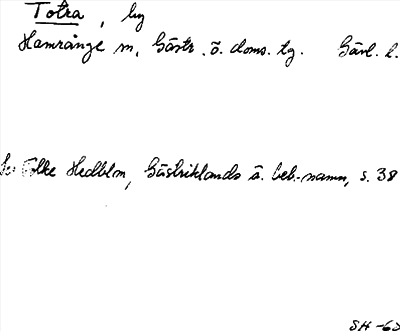 Totra, by
Hamrånge sn, Gästr. ö. doms. tg. Gävl. l.
Se Folke Hedblom, Gästriklands ä. beb.-namn, s. 38
SH -63